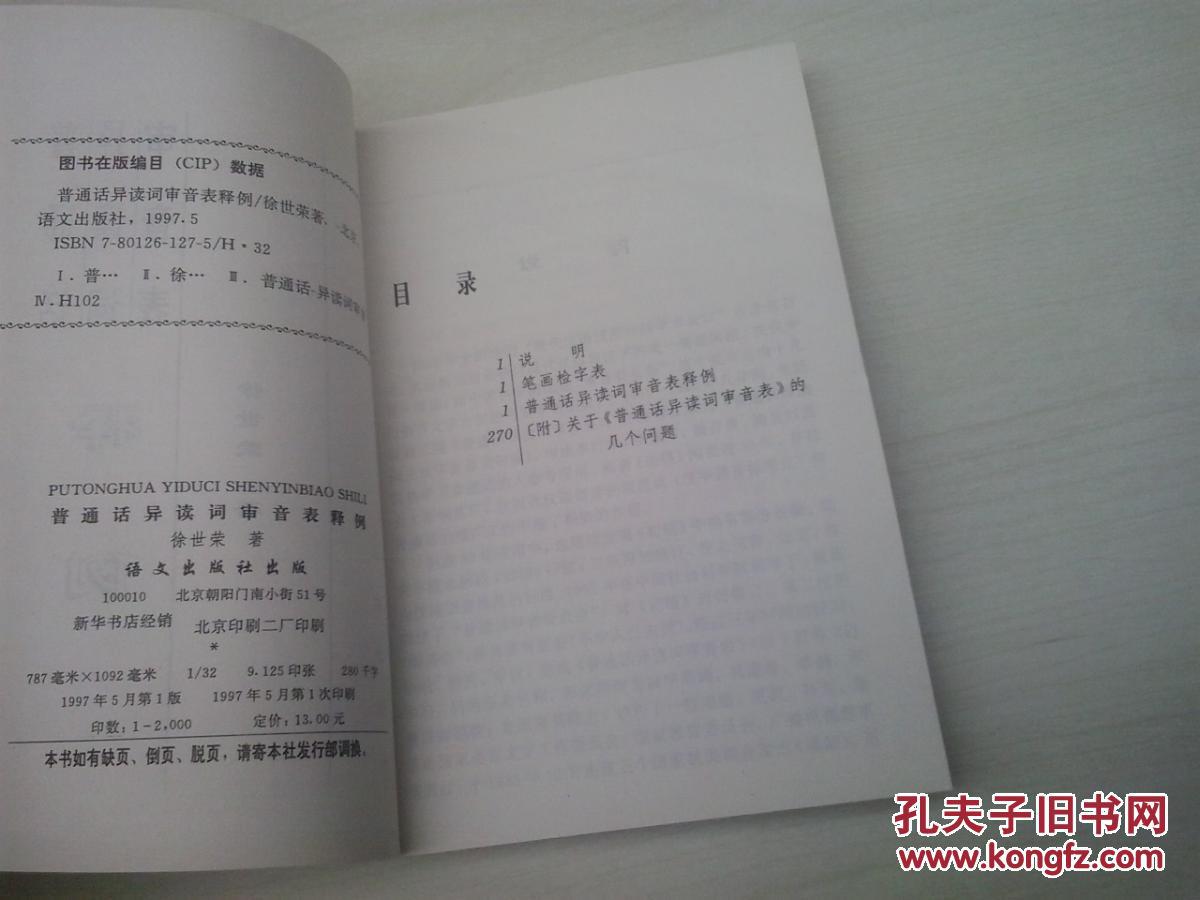 图书在版编目（CIP）数据
普通话异读词审音表释例/徐世荣著．-北京：
语文出版社，1997.5
ISBN 7-80126-127-5/H·32
Ⅰ．普… Ⅱ．徐… Ⅲ．普通话-异读词审音
Ⅳ．H102
PUTONGHUA YIDUCI SHENYINBIAO SHILI
普通话异读词审音表释例
徐世荣 著
语文出版社出版
100010 北京朝阳门南小街51号
新华书店经销 北京印刷二厂印刷
*
787毫米×1092毫米 1/32 9.125印张 280千字
1997年5月第1版 1997年5月第1次印刷
印数：1-2,000 定价：13.00元
本书如有缺页、倒页、脱页，请寄本社发行部调换。
目 录
1 说 明
1 笔画检字表
1 普通话异读词审音表释例
270 〔附〕关于《普通话异读词审音表》的
几个问题
孔夫子旧书网
www.kongfz.com